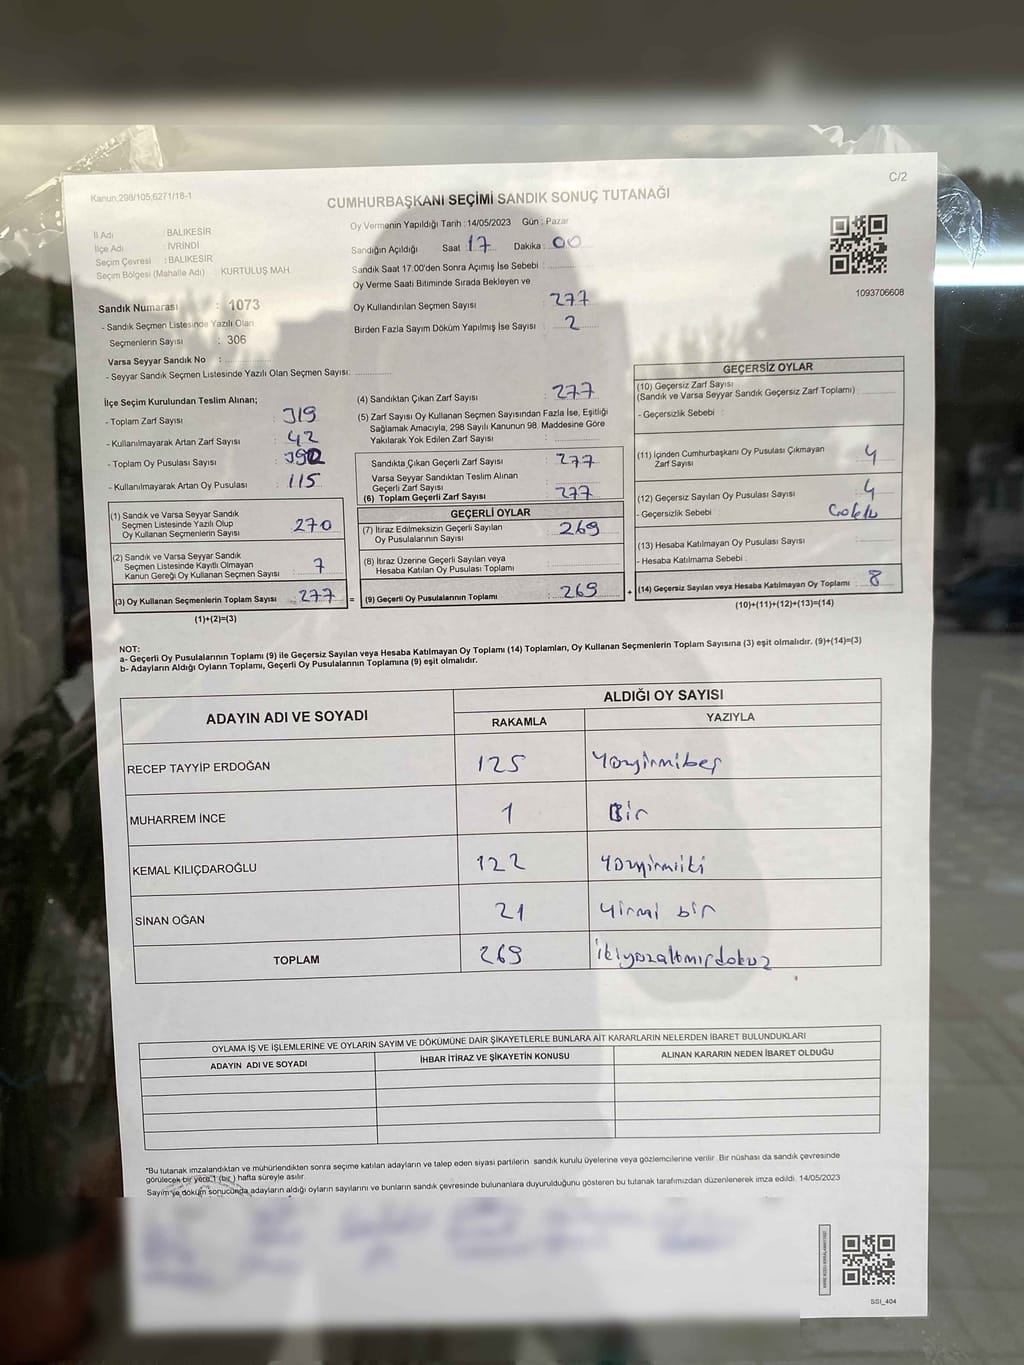 Kanun,298/105,6271/18-1
C/2
CUMHURBAŞKANI SEÇİMİ SANDIK SONUÇ TUTANAĞI
İl Adı : BALIKESİR
İlçe Adı : İVRİNDİ
Seçim Çevresi : BALIKESİR
Seçim Bölgesi (Mahalle Adı) : KURTULUŞ MAH.
Sandık Numarası : 1073
- Sandık Seçmen Listesinde Yazılı Olan
Seçmenlerin Sayısı : 306
Varsa Seyyar Sandık No :
- Seyyar Sandık Seçmen Listesinde Yazılı Olan Seçmen Sayısı:
Oy Vermenin Yapıldığı Tarih : 14/05/2023 Gün : Pazar
Sandığın Açıldığı Saat 17 Dakika : 00
Sandık Saat 17:00'den Sonra Açımış İse Sebebi :
Oy Verme Saati Bitiminde Sırada Bekleyen ve
Oy Kullandırılan Seçmen Sayısı : 277
Birden Fazla Sayım Döküm Yapılmış İse Sayısı : 2
1093706608
İlçe Seçim Kurulundan Teslim Alınan;
- Toplam Zarf Sayısı : 319
- Kullanılmayarak Artan Zarf Sayısı : 42
- Toplam Oy Pusulası Sayısı :
- Kullanılmayarak Artan Oy Pusulası : 115
(1) Sandık ve Varsa Seyyar Sandık
Seçmen Listesinde Yazılı Olup
Oy Kullanan Seçmenlerin Sayısı : 270
(2) Sandık ve Varsa Seyyar Sandık
Seçmen Listesinde Kayıtlı Olmayan
Kanun Gereği Oy Kullanan Seçmen Sayısı : 7
(3) Oy Kullanan Seçmenlerin Toplam Sayısı : 277
(1)+(2)=(3)
(4) Sandıktan Çıkan Zarf Sayısı : 277
(5) Zarf Sayısı Oy Kullanan Seçmen Sayısından Fazla İse, Eşitliği
Sağlamak Amacıyla, 298 Sayılı Kanunun 98. Maddesine Göre
Yakılarak Yok Edilen Zarf Sayısı :
Sandıkta Çıkan Geçerli Zarf Sayısı : 277
Varsa Seyyar Sandıktan Teslim Alınan
Geçerli Zarf Sayısı :
(6) Toplam Geçerli Zarf Sayısı : 277
GEÇERLİ OYLAR
(7) İtiraz Edilmeksizin Geçerli Sayılan
Oy Pusulalarının Sayısı : 269
(8) İtiraz Üzerine Geçerli Sayılan veya
Hesaba Katılan Oy Pusulası Toplamı :
= (9) Geçerli Oy Pusulalarının Toplamı : 269 +
GEÇERSİZ OYLAR
(10) Geçersiz Zarf Sayısı
(Sandık ve Varsa Seyyar Sandık Geçersiz Zarf Toplamı) :
- Geçersizlik Sebebi :
(11) İçinden Cumhurbaşkanı Oy Pusulası Çıkmayan
Zarf Sayısı : 4
(12) Geçersiz Sayılan Oy Pusulası Sayısı : 4
- Geçersizlik Sebebi :
(13) Hesaba Katılmayan Oy Pusulası Sayısı :
- Hesaba Katılmama Sebebi :
(14) Geçersiz Sayılan veya Hesaba Katılmayan Oy Toplamı : 8
(10)+(11)+(12)+(13)=(14)
NOT:
a- Geçerli Oy Pusulalarının Toplamı (9) ile Geçersiz Sayılan veya Hesaba Katılmayan Oy Toplamı (14) Toplamları, Oy Kullanan Seçmenlerin Toplam Sayısına (3) eşit olmalıdır. (9)+(14)=(3)
b- Adayların Aldığı Oyların Toplamı, Geçerli Oy Pusulalarının Toplamına (9) eşit olmalıdır.
ADAYIN ADI VE SOYADI
ALDIĞI OY SAYISI
RAKAMLA YAZIYLA
RECEP TAYYİP ERDOĞAN 125 Yüzyirmibeş
MUHARREM İNCE 1 Bir
KEMAL KILIÇDAROĞLU 122 Yüzyirmiiki
SİNAN OĞAN 21 Yirmi bir
TOPLAM 269 İkiyüzaltmışdokuz
OYLAMA İŞ VE İŞLEMLERİNE VE OYLARIN SAYIM VE DÖKÜMÜNE DAİR ŞİKAYETLERLE BUNLARA AİT KARARLARIN NELERDEN İBARET BULUNDUKLARI
ADAYIN ADI VE SOYADI İHBAR İTİRAZ VE ŞİKAYETİN KONUSU ALINAN KARARIN NEDEN İBARET OLDUĞU
*Bu tutanak imzalandıktan ve mühürlendikten sonra seçime katılan adayların ve talep eden siyasi partilerin sandık kurulu üyelerine veya gözlemcilerine verilir. Bir nüshası da sandık çevresinde
görülecek bir yere 1 (bir ) hafta süreyle asılır.
Sayım ve döküm sonucunda adayların aldığı oyların sayılarını ve bunların sandık çevresinde bulunanlara duyurulduğunu gösteren bu tutanak tarafımızdan düzenlenerek imza edildi. 14/05/2023
SSI_404